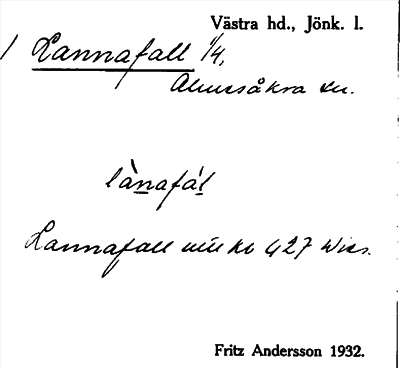 Västra hd., Jönk. l.
/ Lannafall 1/4,
Almesåkra sn.
lànafál
Lannafall 427
Fritz Andersson 1932.